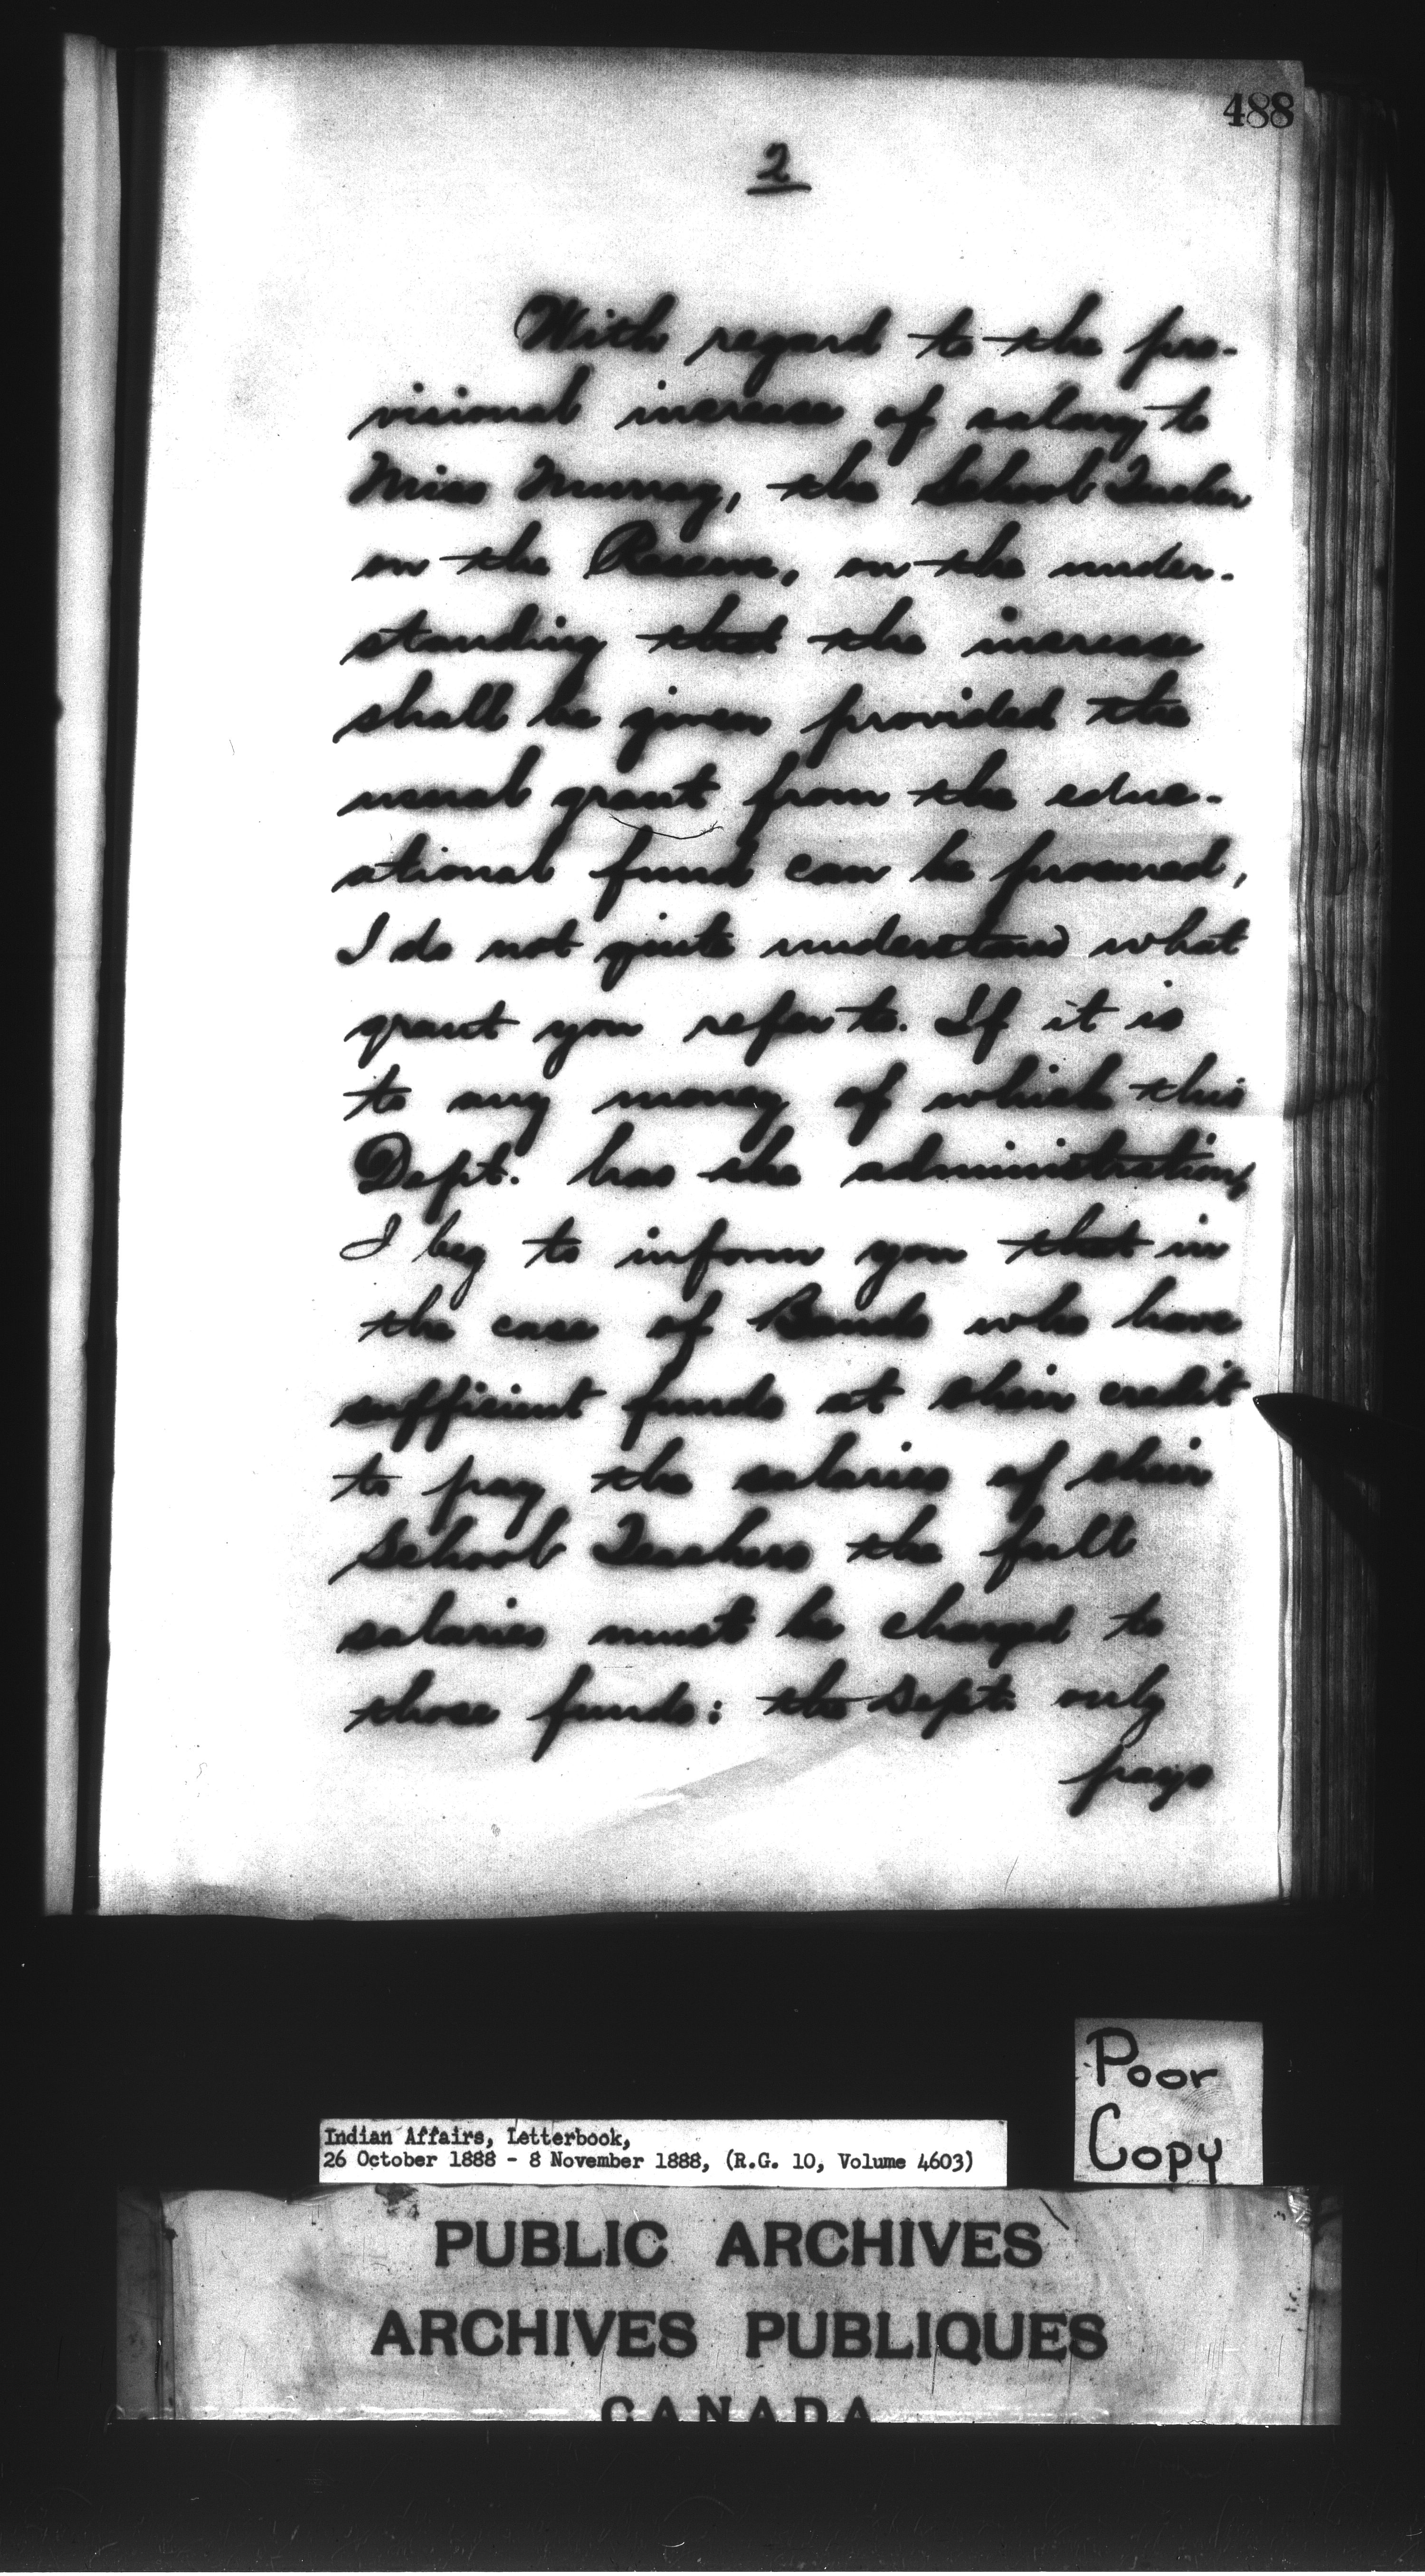 488
2
With regard to the pro-
visional increase of salary to
Miss Murray, the School Teacher
on the Reserve, on the under-
standing that the increase
shall be given provided the
usual grant from the educ-
ational fund can be procured,
I do not quite understand what
grant you refer to. If it is
to any money of which this
Dept. has the administration,
I beg to inform you that in
the case of Bands who have
sufficient funds at their credit
to pay the salaries of their
School Teachers the full
salaries must be charged to
those funds: the Dept. only
pays
Poor
Copy
Indian Affairs, Letterbook,
26 October 1888 - 8 November 1888, (R.G. 10, Volume 4603)
PUBLIC ARCHIVES
ARCHIVES PUBLIQUES
CANADA